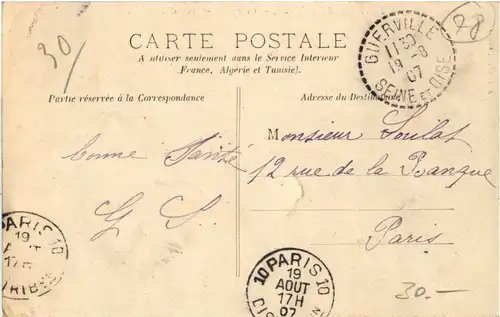 30
78
CARTE POSTALE
A utiliser seulement dans le Service Intérieur
(France, Algérie et Tunisie).
GUERVILLE
11 30
19 -8
07
SEINE ET OISE
Partie réservée à la Correspondance
Adresse du Destinataire
bonne Santé
G S.
Monsieur Soulat
12 rue de la Banque
Paris
PARIS 10
19
AOUT
17H
10 PARIS 10
19
AOUT
17H
07
30.-